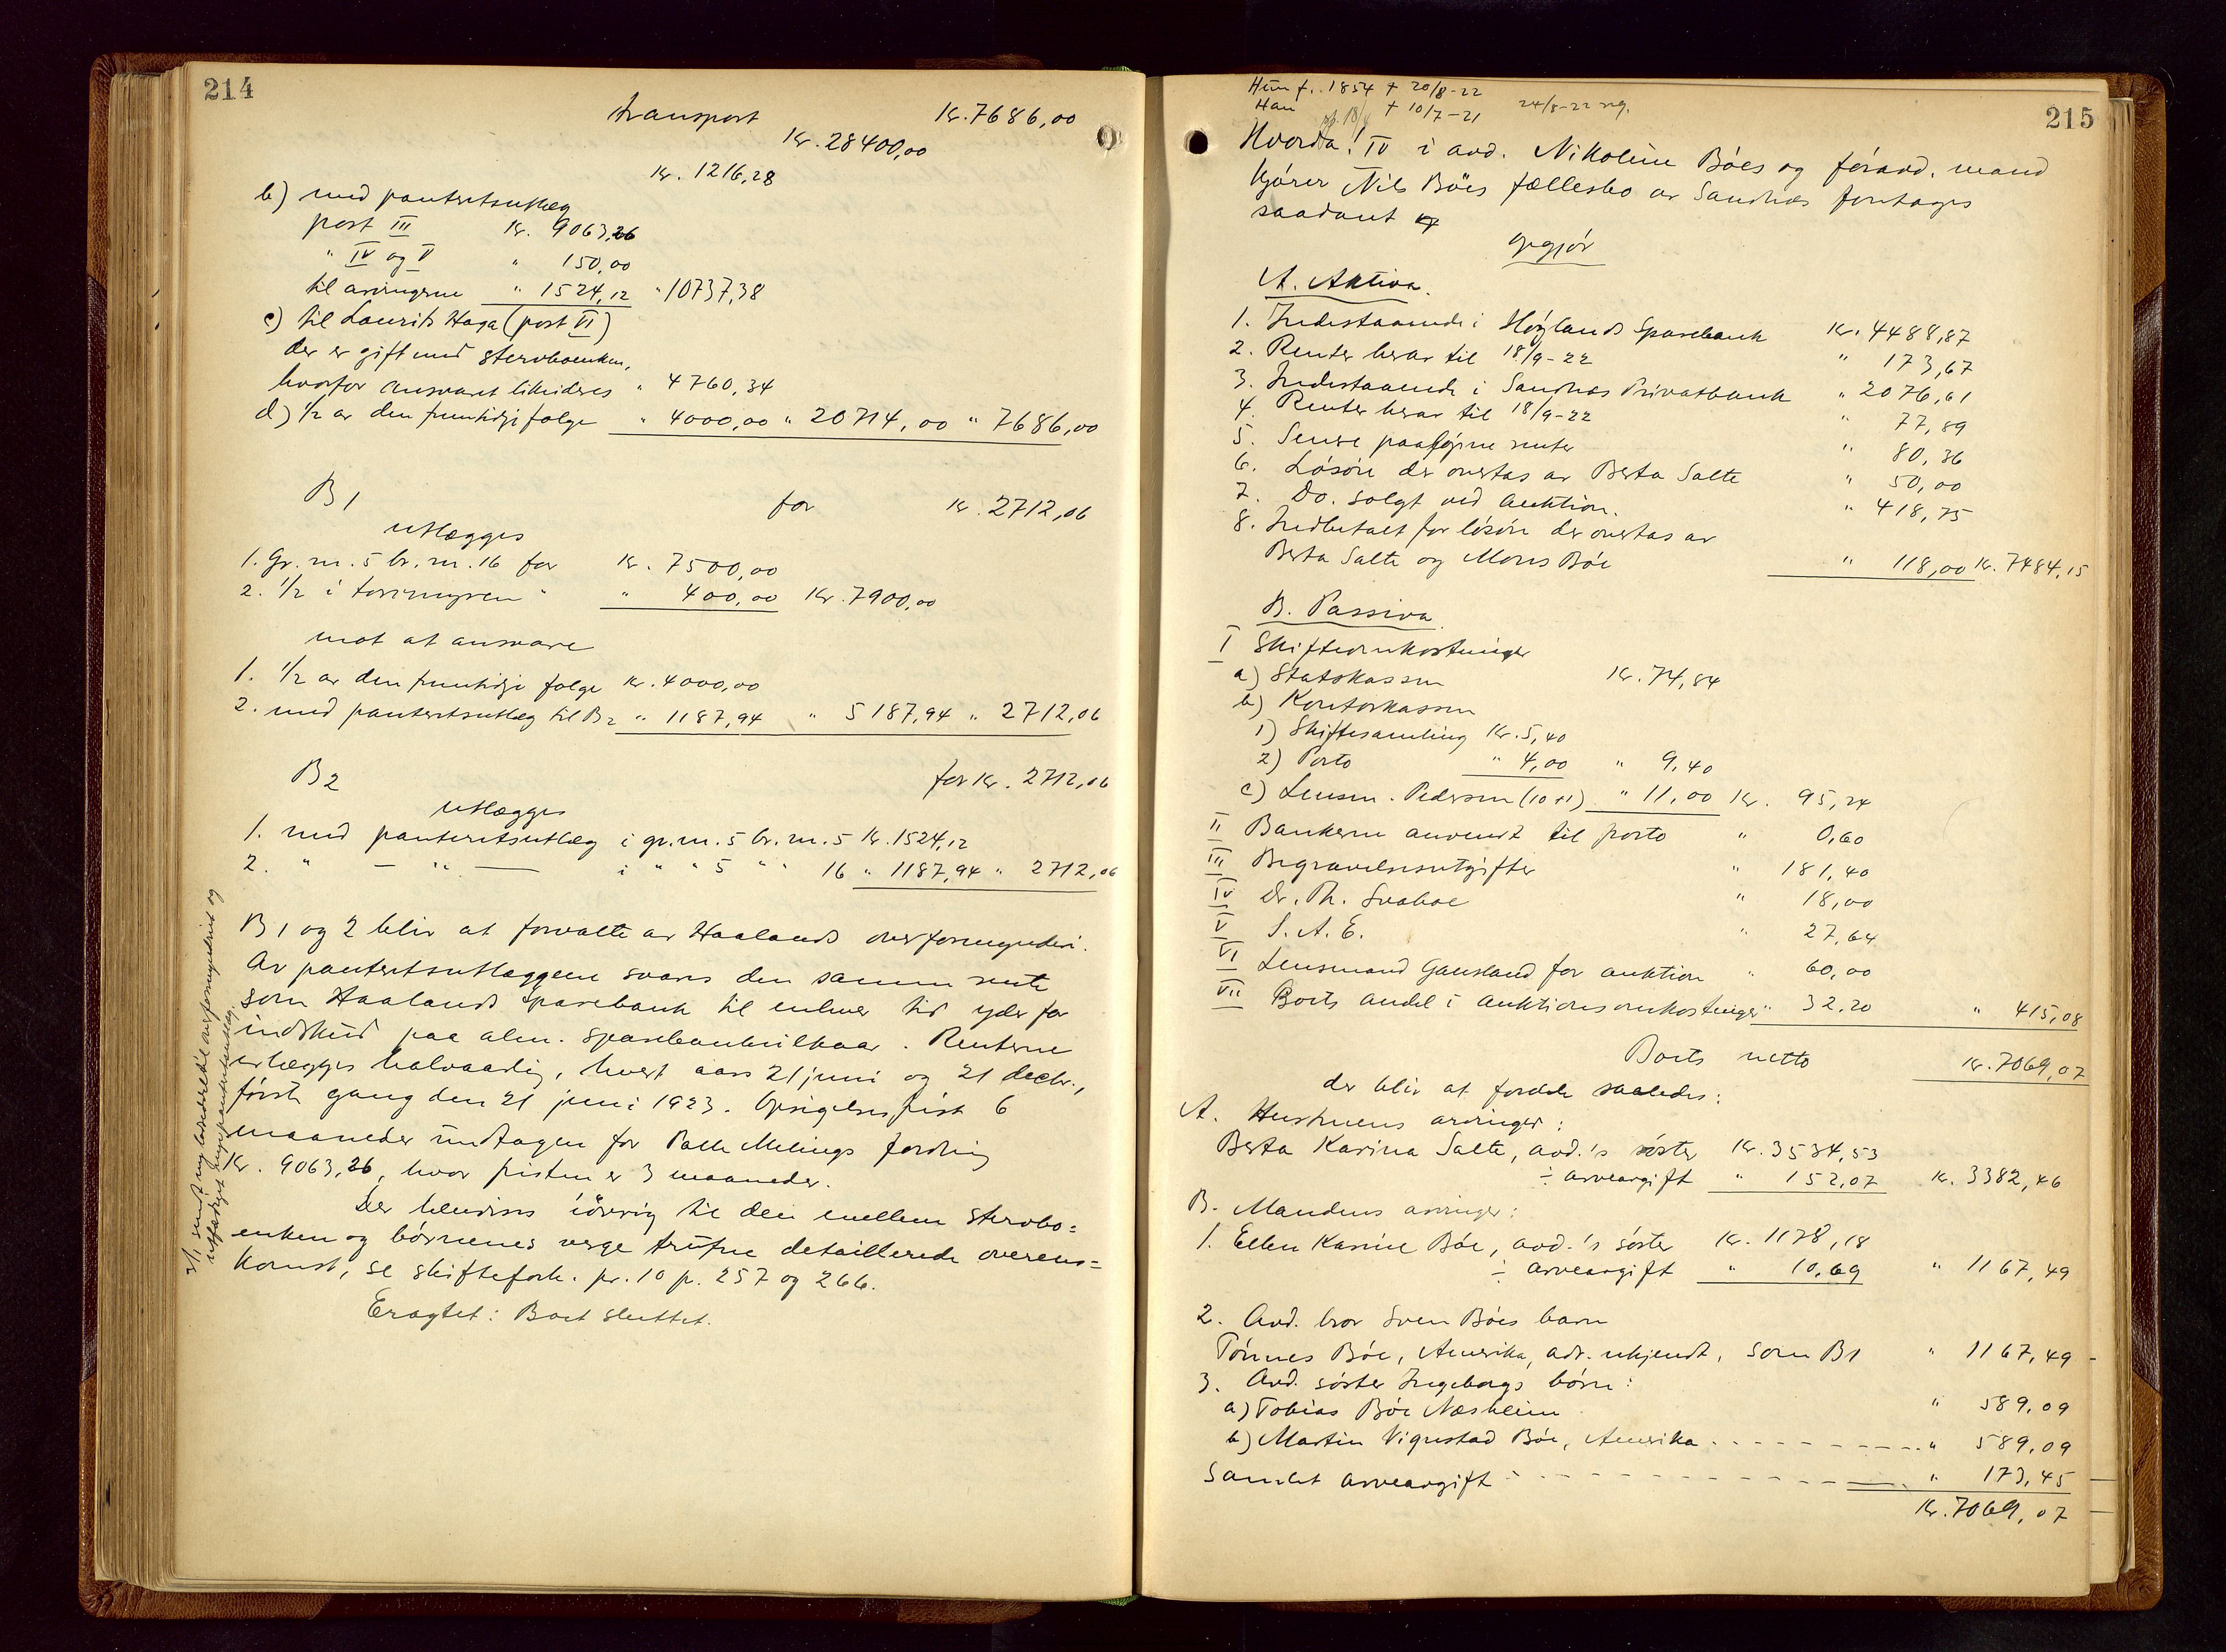 214
transport Kr. 7686,00
Kr. 28400,00
Kr. 1216,28
b) med panteretsutlæg
post III Kr. 9063,26
" IV og V " 150,00
til arvingerne " 1524,12 " 10737,38
c) til Laurits Haga (post VI)
der er gift med stervboenken,
hvorfor ansvaret likvideres " 4760,34
d) 1/2 av den fremtidige følge " 4000,00 " 20714,00 " 7686,00
B1 for Kr. 2712,06
utlægges
1. Gr. nr. 5 br. nr. 16 for Kr. 7500,00
2. 1/2 i torvmyren " " 400,00 Kr. 7900,00
mot at ansvare
1. 1/2 av den fremtidige følge Kr. 4000,00
2. med panteretsutlæg til B2 " 1187,94 " 5187,94 " 2712,06
B2 for Kr. 2712,06
utlægges
1. med panteretsutlæg i gr. nr. 5 br. nr. 5 Kr. 1524,12
2. " — " — i " " 5 " " 16 " 1187,94 " 2712,06
B1 og 2 blir at forvalte av Haalands overformynderi.
Av panteretsutlæggene svares den samme rente
som Haalands Sparebank til enhver tid yder for
indskud paa alm. sparebankvilkaar. Renterne
erlægges halvaarlig, hvert aars 21 juni og 21 decbr.,
første gang den 21 juni 1923. Opsigelsesfrist 6
maaneder undtagen for Palle Melings fordring
Kr. 9063,26, hvor fristen er 3 maaneder.
Der henvises iøvrig til den mellem stervbo=
enken og børnenes verge trufne detaillerede overens=
komst, se skifteforh. pr. 10 p. 257 og 266.
Eragtet: Boet sluttet.
215
Hun f. 1854 † 20/8-22
Han † 10/7-21 24/8-22 reg.
Hvorda! IV i avd. Nikoline Böes og foravd. mand
kjører Nils Böes fællesbo av Sandnes foretages
saadant
opgjör
A. Aktiva.
1. Indestaaende i Höylands Sparebank Kr. 4488,87
2. Renter herav til 18/9-22 " 173,67
3. Indestaaende i Sandnes Privatbank " 2076,61
4. Renter herav til 18/9-22 " 77,89
5. Senere paaløpne renter " 80,36
6. Løsøre der overtas av Berta Salte " 50,00
7. Do. solgt ved auktion. " 418,75
8. Indbetalt for løsøre der overtas av
Berta Salte og Mons Böe " 118,00 Kr. 7484,15
B. Passiva
I Skifteomkostninger
a) Statskassen Kr. 74,84
b) Kontorkassen
1) Skiftesamling Kr. 5,40
2) Porto " 4,00 " 9,40
c) Lensm. Pedersen (10+1) " 11,00 Kr. 95,24
II Bankerne anvendt til porto " 0,60
III Begravelsesutgifter " 181,40
IV Dr. Th. Svaboe " 18,00
V S. A. E. " 27,64
VI Lensmand Gausland for auktion " 60,00
VII Boets andel i auktionsomkostninger " 32,20 " 415,08
Boets netto Kr. 7069,07
der blir at fordele saaledes:
A. Hustruens arvinger:
Berta Karina Salte, avd.'s søster Kr. 3534,53
÷ arveavgift " 152,07 Kr. 3382,46
B. Mandens arvinger:
1. Ellen Karine Böe, avd.'s søster Kr. 1178,18
÷ arveavgift " 10,69 " 1167,49
2. Avd. bror Sven Böes barn
Tönnes Böe, Amerika, adr. ukjendt, som B1 " 1167,49 -
3. Avd. søster Ingeborgs børn:
a) Tobias Böe Næsheim " 589,09
b) Martin Vignestad Böe, Amerika - - - - - - - - " 589,09
Samlet arveavgift - - - - - - - - " 173,45
Kr. 7069,07